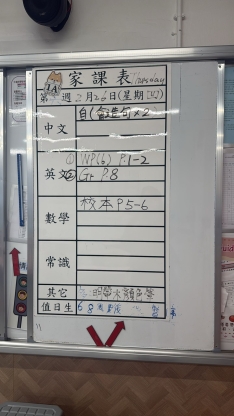 1A 家課表 Thursday
第 週 2月26日(星期四)
中文 自(會造句×2)
① WP(6) P.1-2
英文 ② Gr P.8
數學 校本 P5-6
常識
其它 明帶水顏色筆
值日生 6 8